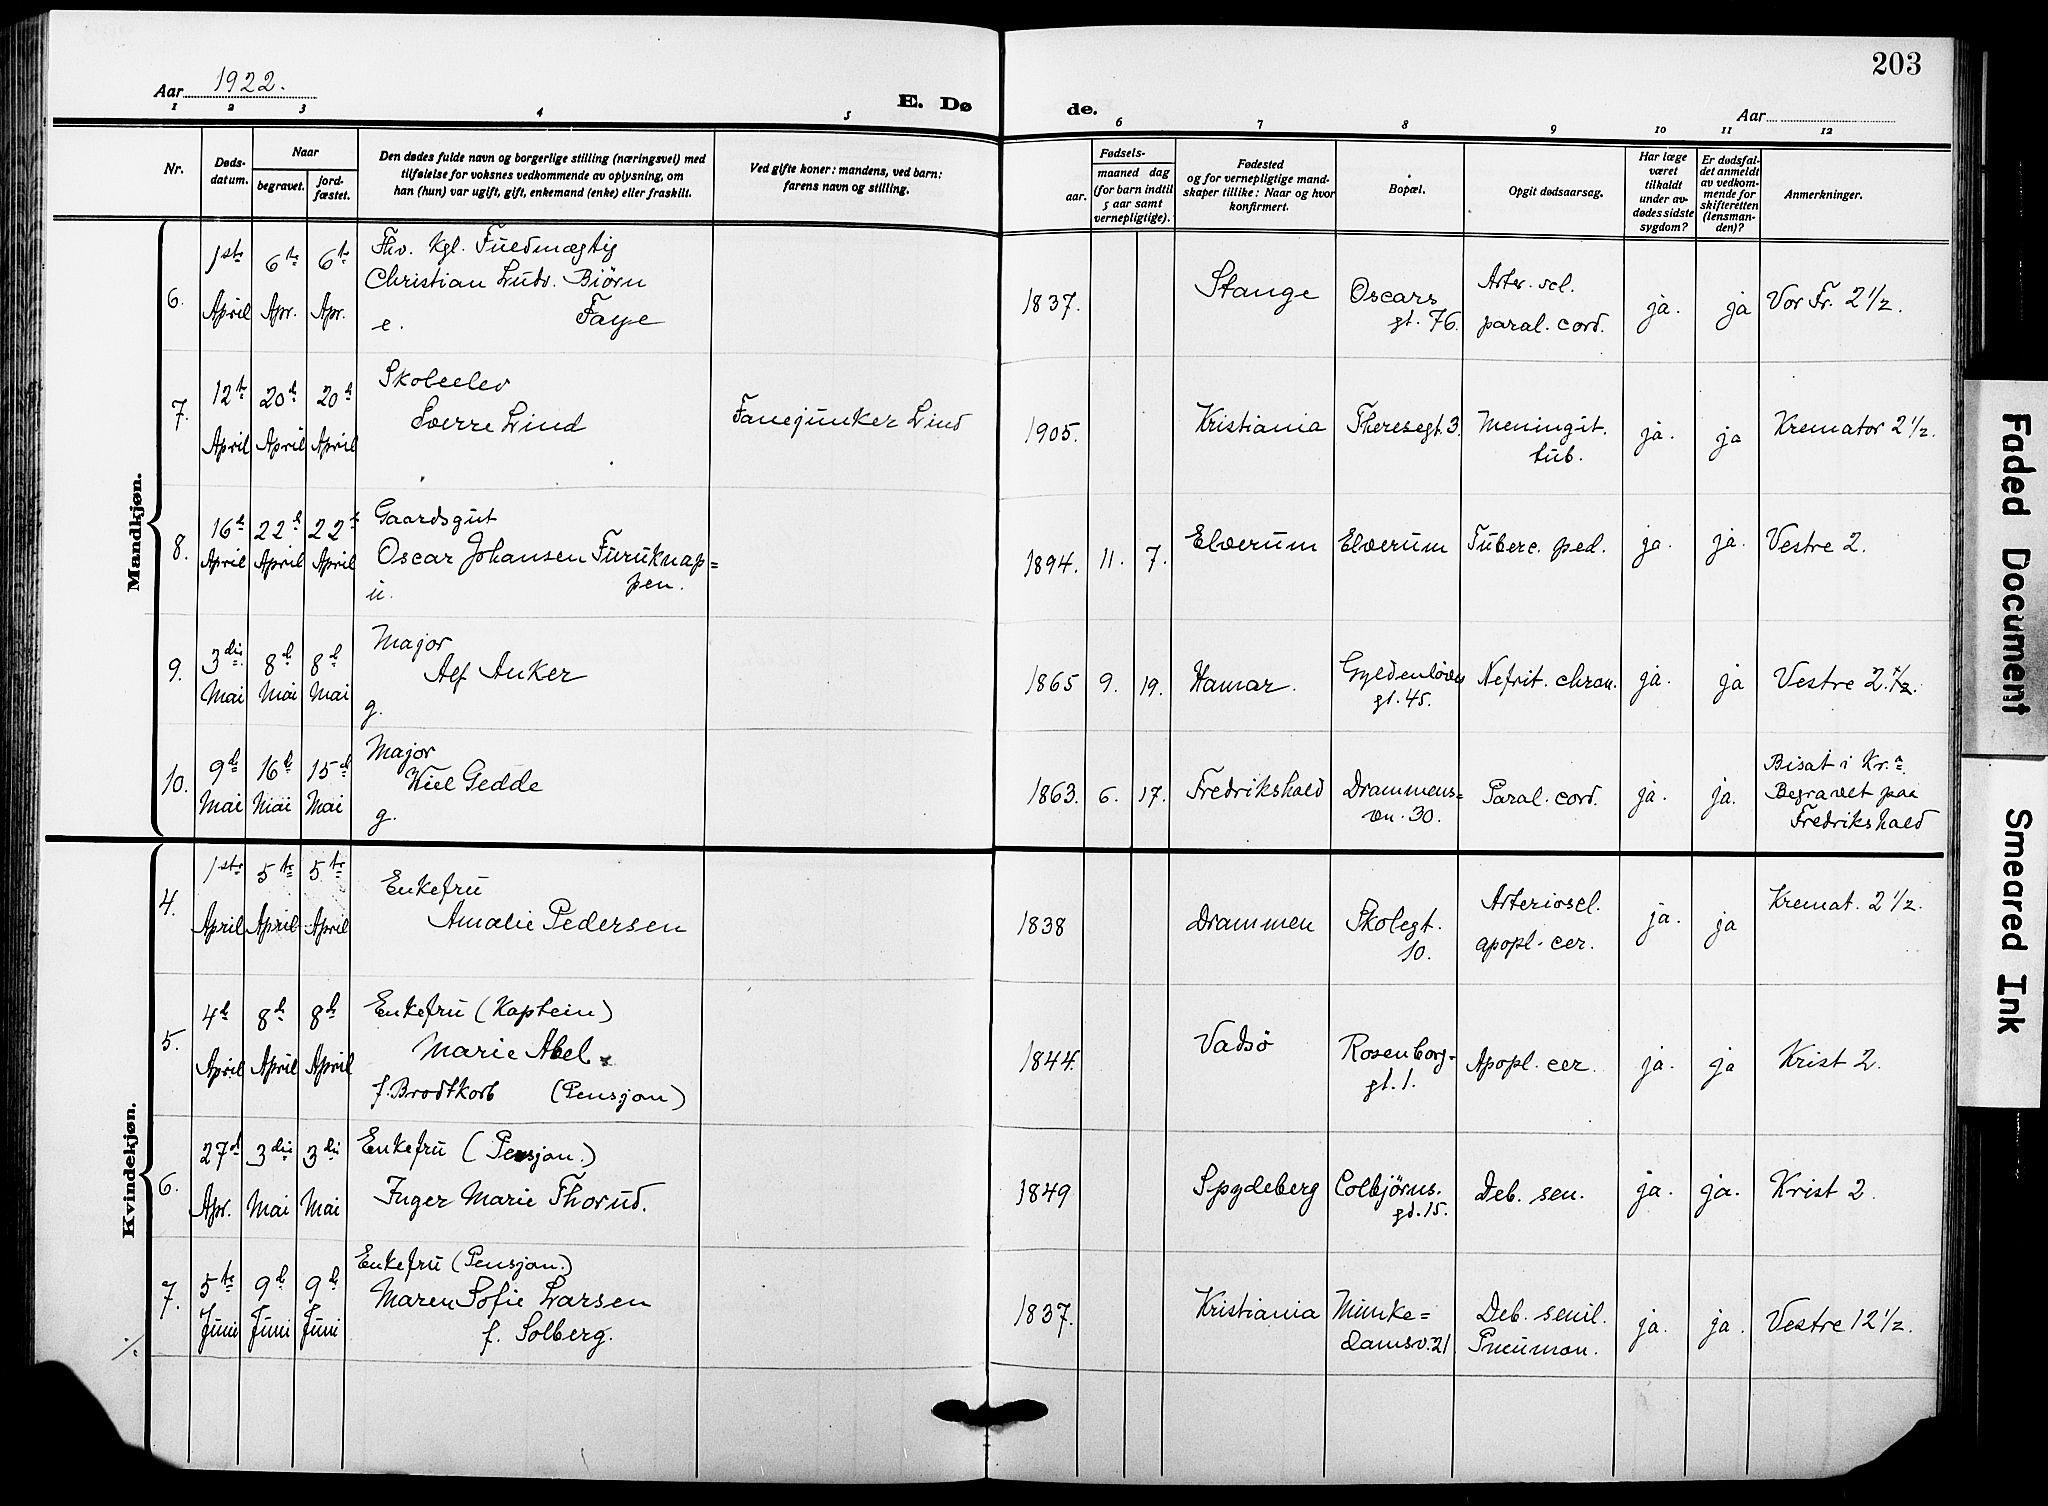 203
Aar 1922.
E. Dø de.
Aar
1 2 3 4 5 6 7 8 9 10 11 12
Nr.
Døds-
datum.
Naar
begravet.
jord-
fæstet.
Den dødes fulde navn og borgerlige stilling (næringsvei) med
tilføielse for voksnes vedkommende av oplysning, om
han (hun) var ugift, gift, enkemand (enke) eller fraskilt.
Ved gifte koner: mandens, ved barn:
farens navn og stilling.
Fødsels-
aar.
maaned dag
(for barn indtil
5 aar samt
vernepligtige).
Fødested
og for vernepligtige mand-
skaper tillike: Naar og hvor
konfirmert.
Bopæl.
Opgit dødsaarsag.
Har læge
været
tilkaldt
under av-
dødes sidste
sygdom?
Er dødsfal-
det anmeldt
av vedkom-
mende for
skifteretten
(lensman-
den)?
Anmerkninger.
Mandkjøn.
6.
1ste April
6te Apr.
6te Apr.
Fhv. Kgl. Fuldmægtig
Christian Ludv. Biørn
e. Faye
1837.
Stange
Oscars
gt. 76.
Arter. scl.
paral. cord.
ja.
ja
Vor Fr. 2 1/2.
7.
12te April
20de April
20de April
Skoleelev
Sverre Lind
Fanejunker Lind
1905.
Kristiania
Theresegt. 3.
Meningit.
tub.
ja.
ja
Kremator 2 1/2.
8.
16de April
22de April
22de April
Gaardsgut
Oscar Johansen Furuknap=
u. pen.
1894. 11. 7.
Elverum
Elverum
Tuberc. ped.
ja.
ja.
Vestre 2.
9.
3die Mai
8de Mai
8de Mai
Major
Alf Anker
g.
1865 9. 19.
Hamar.
Gyldenløves
gt. 45.
Nefrit. chron.
ja.
ja
Vestre 2. 1/2.
10.
9de Mai
16de Mai
15de Mai
Major
Wiel Gedde
g.
1863. 6. 17.
Fredrikshald
Drammens=
vn. 30.
Paral. cord.
ja.
ja.
Bisat i Kr.a
Begravet paa
Fredrikshald
Kvindekjøn.
4.
1ste April
5te April
5te April
Enkefru
Amalie Pedersen
1838
Drammen
Skolegt.
10.
Arterioscl.
apopl. cer.
ja.
ja
Kremat. 2 1/2.
5.
4de April
8de April
8de April
Enkefru (Kaptein)
Marie Abel
f. Brodtkorb (Pensjon)
1844.
Vadsö
Rosenborg-
gt. 1.
Apopl. cer.
ja.
ja
Krist 2.
6.
27de Apr.
3die Mai
3die Mai
Enkefru (Pensjon.)
Inger Marie Thorud.
1849
Spydeberg
Colbjörns.
gt. 15.
Deb. sen.
ja.
ja.
Krist 2.
7.
5te Juni
9de Juni
9de Juni
Enkefru (Pensjon.)
Maren Sofie Larsen
f. Solberg.
1837.
Kristiania
Munke=
damsv. 21
Deb. senil.
Pneumon.
ja.
ja.
Vestre 12 1/2.
./.
Faded Document
Smeared Ink